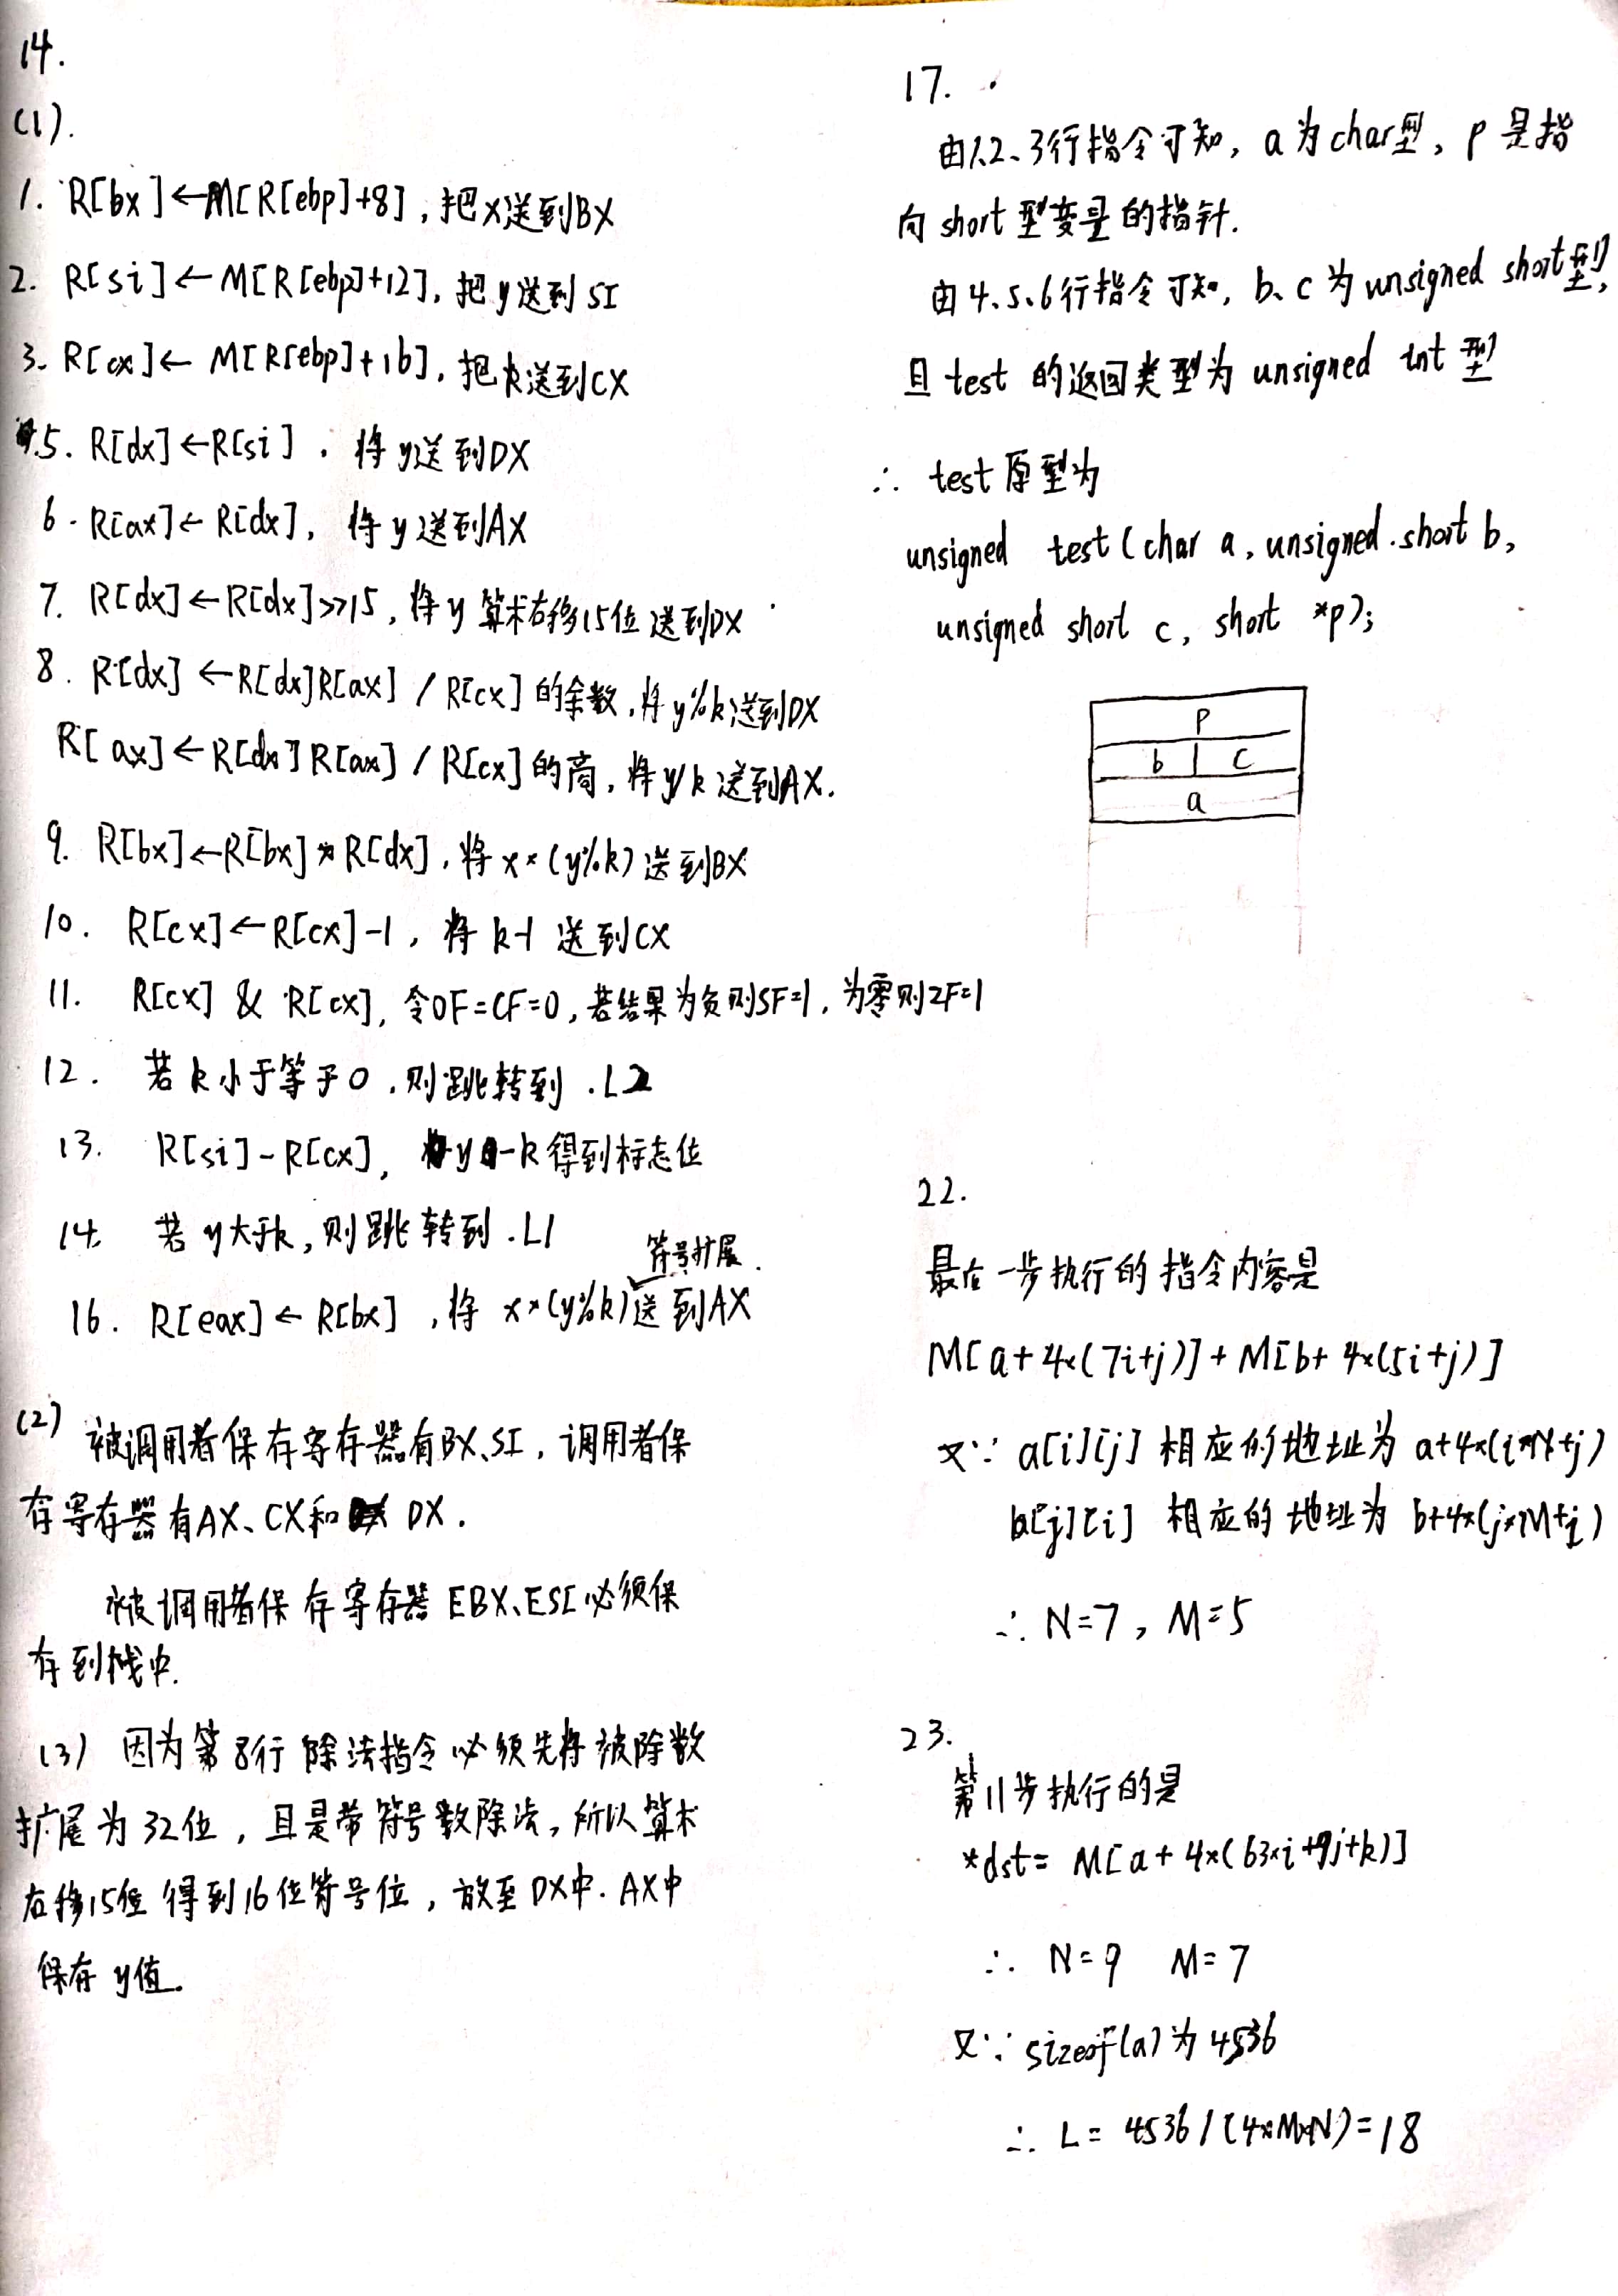 14.
(1).
1. R[bx]←M[R[ebp]+8], 把x送到BX
2. R[si]←M[R[ebp]+12], 把y送到SI
3. R[cx]← M[R[ebp]+16], 把k送到CX
5. R[dx]←R[si]. 将y送到DX
6. R[ax]← R[dx], 将y送到AX
7. R[dx]←R[dx]>>15, 将y算术右移15位送到DX
8. R[dx]←R[dx]R[ax] / R[cx]的余数, 将y%k送到DX
R[ax]←R[dx]R[ax] / R[cx]的商, 将y/k送到AX.
9. R[bx]←R[bx]*R[dx], 将x*(y%k)送到BX
10. R[cx]←R[cx]-1, 将k-1送到CX
11. R[cx] & R[cx], 令OF=CF=0, 若结果为负则SF=1, 为零则ZF=1
12. 若k小于等于0, 则跳转到 .L2
13. R[si]-R[cx], y-k得到标志位
14. 若y大于k, 则跳转到 .L1
符号扩展
16. R[eax]← R[bx], 将 x*(y%k)送到AX
(2) 被调用者保存寄存器有BX、SI, 调用者保
存寄存器有AX、CX和 DX.
被调用者保存寄存器EBX、ESI必须保
存到栈中.
(3) 因为第8行除法指令必须先将被除数
扩展为32位, 且是带符号数除法, 所以算术
右移15位得到16位符号位, 放至DX中. AX中
保存y值.
17.
由1、2、3行指令可知, a为char型, p是指
向short型变量的指针.
由4、5、6行指令可知, b、c为unsigned short型,
且test的返回类型为unsigned int型
∴ test原型为
unsigned test(char a, unsigned short b,
unsigned short c, short *p);
p
b c
a
22.
最后一步执行的指令内容是
M[a+4×(7i+j)]+M[b+4×(5i+j)]
又∵ a[i][j] 相应的地址为 a+4×(i*N+j)
b[j][i] 相应的地址为 b+4×(j*M+i)
∴ N=7, M=5
23.
第11步执行的是
*dst= M[a+4×(63×i+9j+k)]
∴ N=9 M=7
又∵ sizeof(a)为4536
∴ L= 4536/(4×M×N)=18